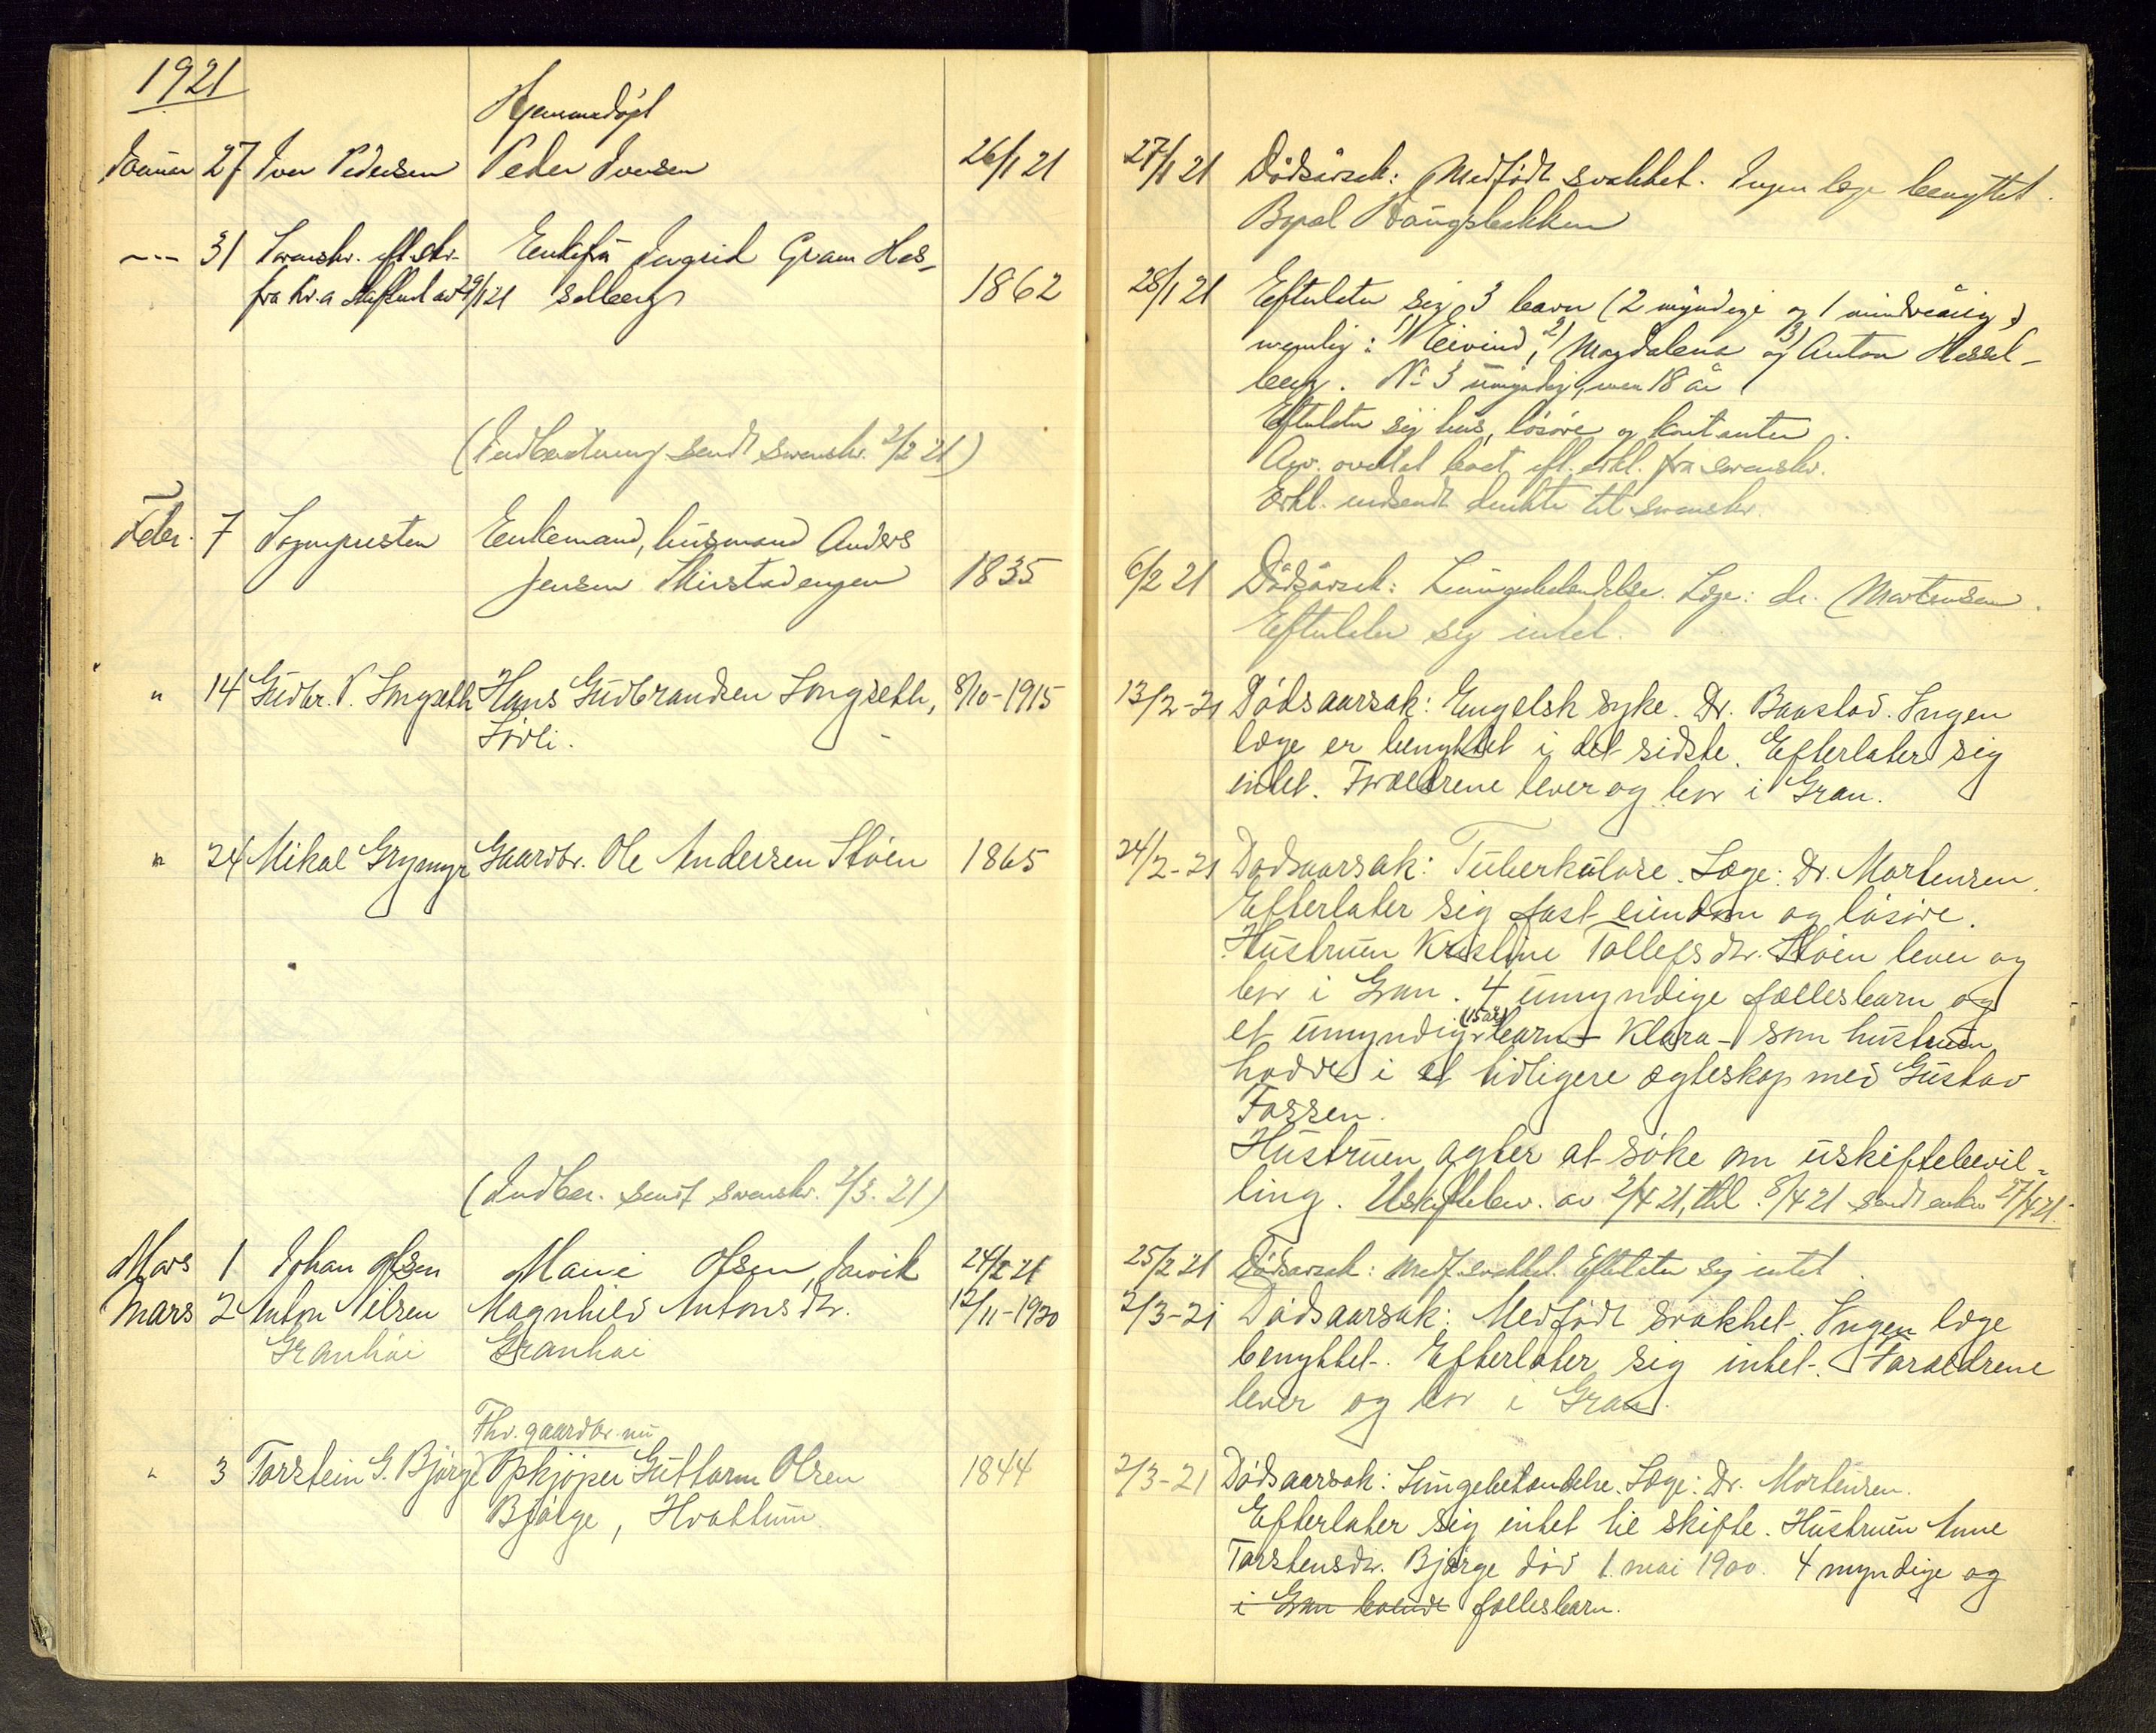 1921
Hjemmedøpt
Januar 27 Iver Pedersen Peder Iversen 26/1 21 27/1 21 Dødsårsak: Medfødt svakhet. Ingen læge benyttet.
Bopæl
--- 31 Sorenskr. eft. skr. Enkefru Ingrid Gram Hes-
fra Kr.a av 29/1 21 selberg 1862 28/1 21 Efterlater sig 3 barn (2 myndige og 1 mindreårig)
nemlig: 1) Eivind, 2) Magdalena og 3) Anton Hessel-
berg. No 3 umyndig, men 18 år
Efterlater sig hus, løsøre og kontanter.
(Indberetning sendt sorenskr. 2/2 21) boet eft. erkl. fra sorenskr.
Erkl. indsendt til sorenskr.
Febr. 7 Sognepresten Enkemand, husmand Anders
Jensen 1835 6/2 21 Dødsårsak: Lungebetændelse. Læge: dr. Mortensen.
Efterlater sig intet.
" 14 Gudbr. P. Longseth Hans Gudbrandsen Longseth, 8/10-1915 13/2-21 Dødsaarsak: Engelsk syke. Dr. Baastad. Ingen
læge er benyttet i det sidste. Efterlater sig
intet. Forældrene lever og bor i Gran.
" 24 Mikal Grymyr Gaardbr. Ole Andersen Støen 1865 24/2-21 Dødsaarsak: Tuberkulose. Læge: Dr. Mortensen.
Efterlater sig fast eiendom og løsøre.
Hustruen Kristine Tollefsdr. Støen lever og
bor i Gran. 4 umyndige fællesbarn og
et umyndig (15 aar) barn - Klara - som hustruen
hadde i et tidligere ægteskap med Gustav
Fossen.
Hustruen agter at søke om uskiftebevil-
(Indber. sendt sorenskr. 2/3. 21) ling. Uskiftebev. av 2/4 21, thl. 8/4 21 sendt enken 27/4 21.
Mars 1 Johan Olsen Marie Olsen, Jarvik 24/2 21 25/2 21 Dødsårsak: Medf. svakhet. Efterlater sig intet.
Mars 2 Anton Nilsen Magnhild Antonsdr. 12/11-1920 2/3-21 Dødsaarsak: Medfødt svakhet. Ingen læge
Granhøi Granhøi benyttet. Efterlater sig intet. Forældrene
lever og bor i Gran.
Fhv. gaardbr. nu
" 3 Torstein G. Bjørge Opkjøper Guttorm Olsen 1844 2/3-21 Dødsaarsak: Lungebetændelse. Læge: Dr. Mortensen.
Bjørge, Hvattum Efterlater sig intet til skifte. Hustruen Anne
Torstensdr. Bjørge død 1. mai 1900. 4 myndige og
i Gran boende fællesbarn.